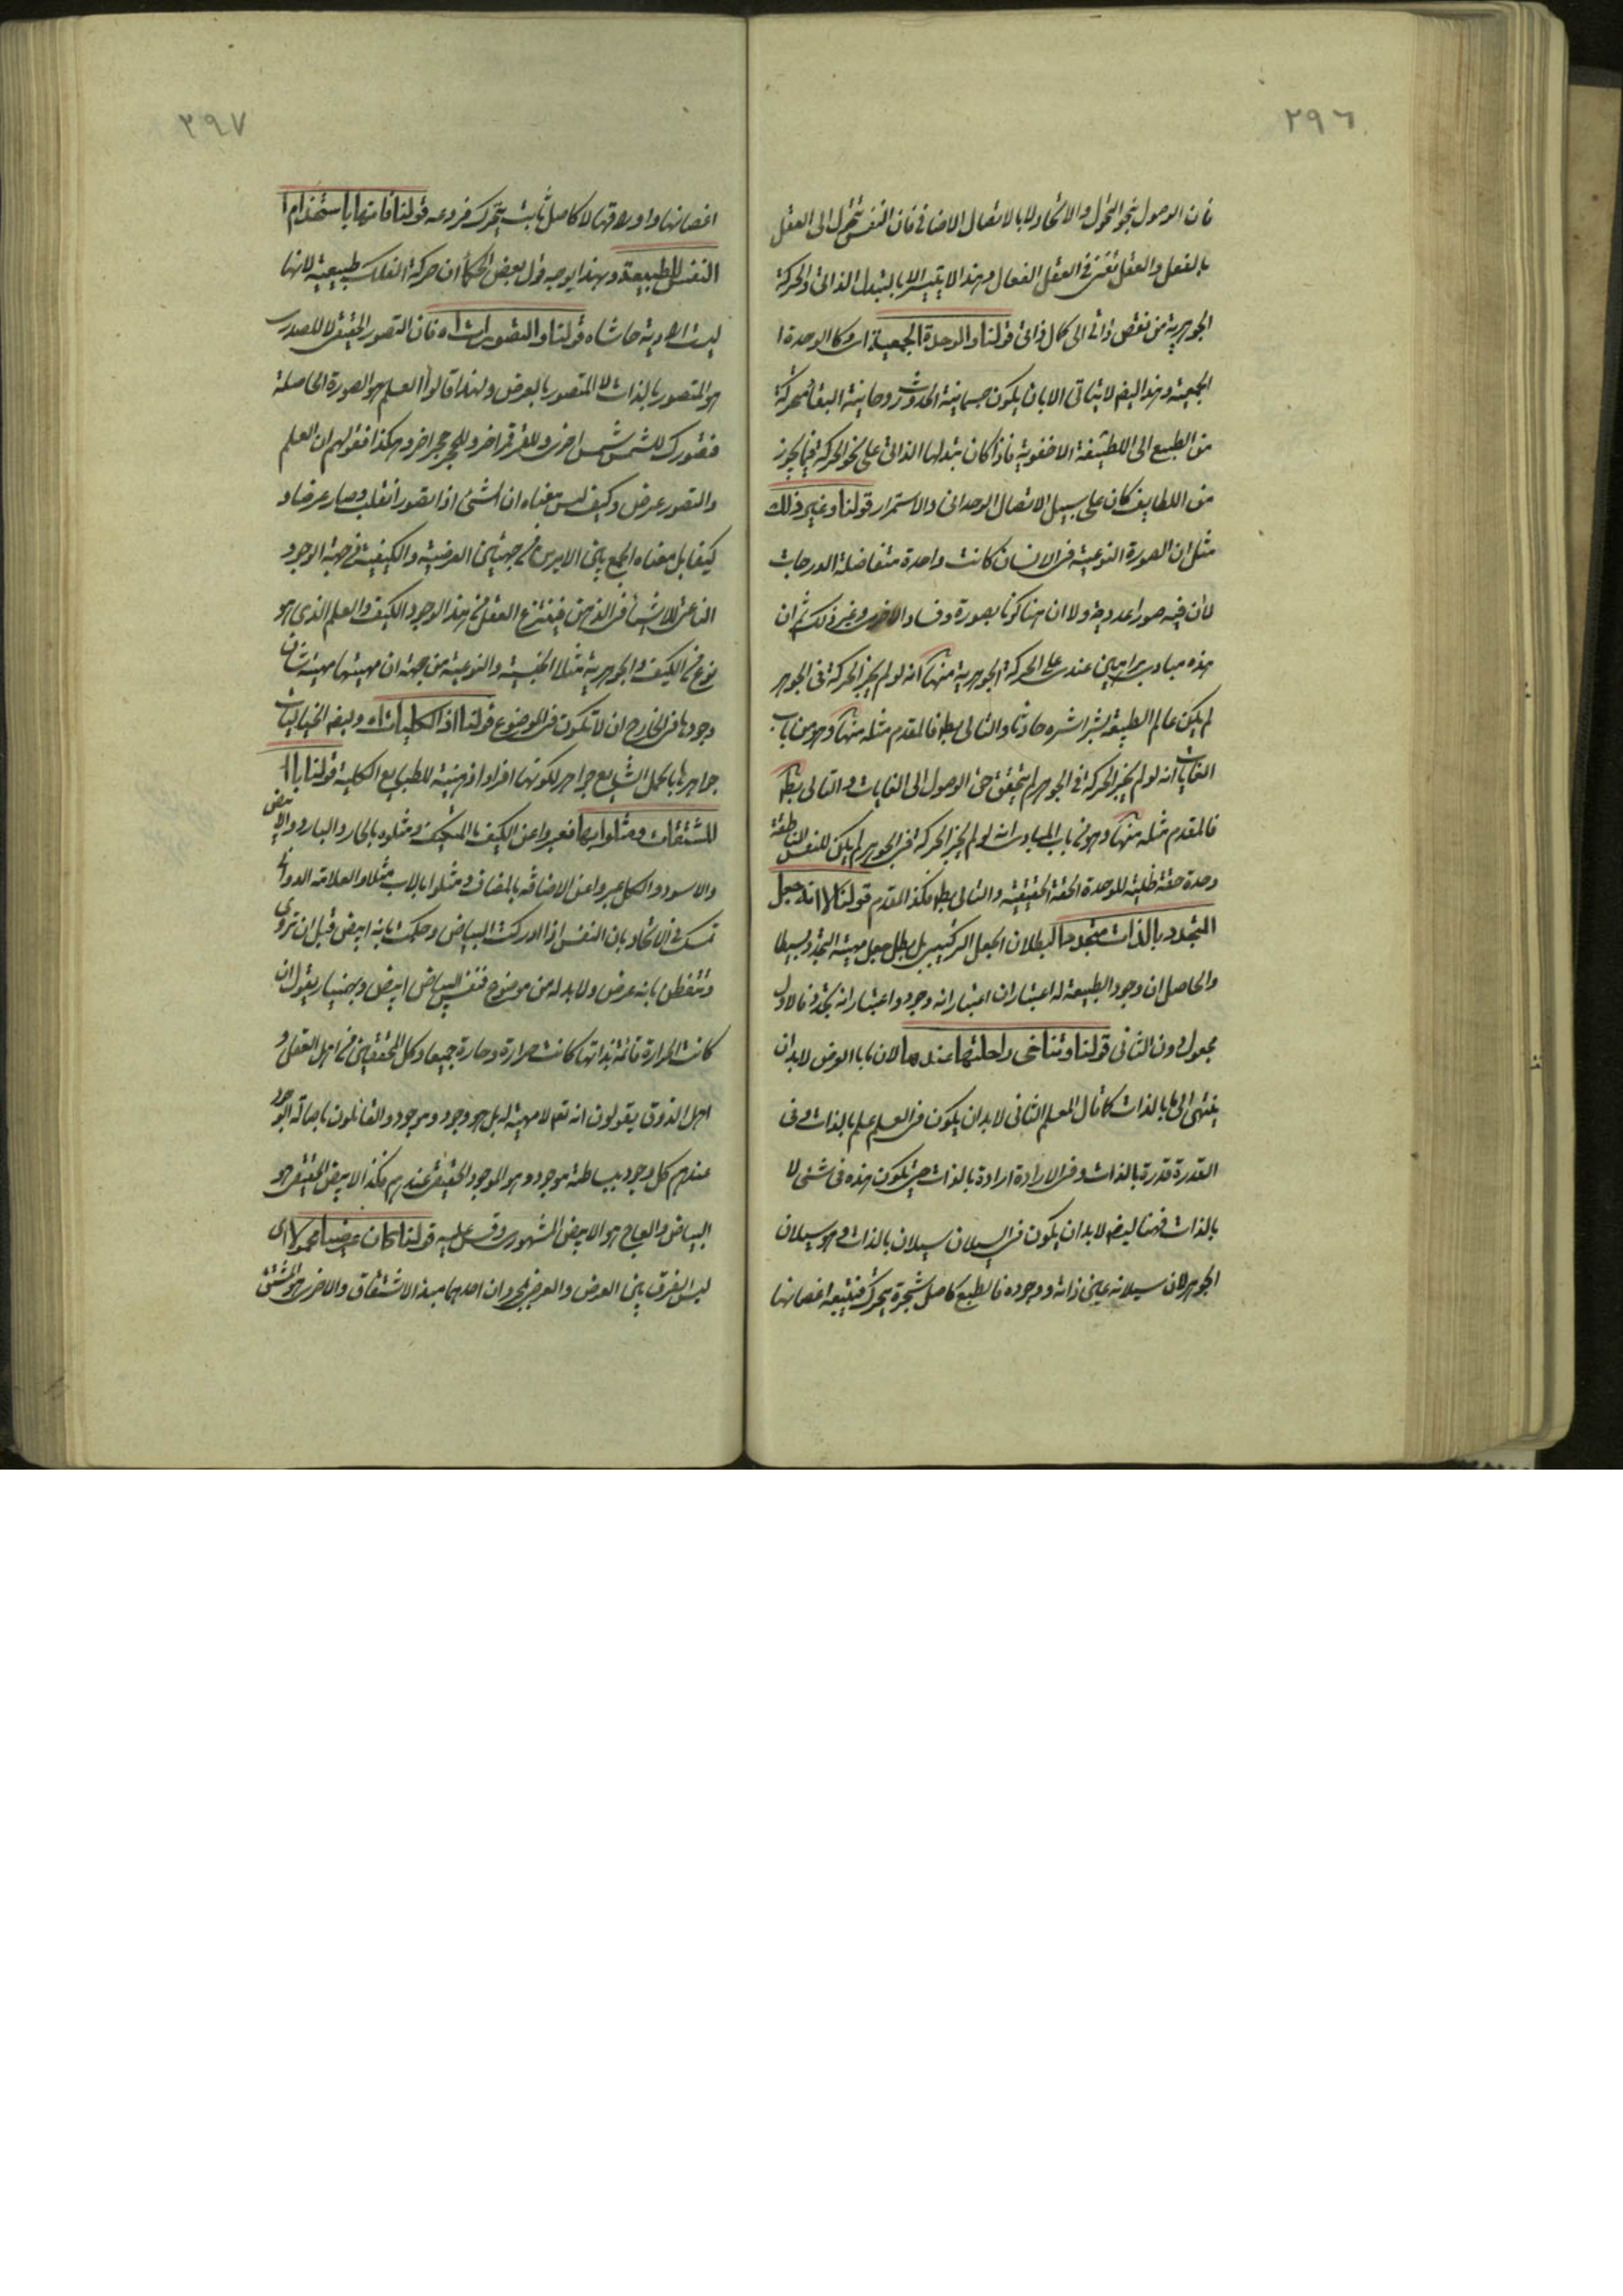 ٢٩٦
فان الوصول بنحو التحول والاتحاد لا بالاتصال الاضافى فان النفس تتحول الى العقل
بالفعل والعقل تفنى فى العقل الفعال وهذا لا يتيسر الا بالتبدل الذاتى والحركة
الجوهرية من نقص ذاتى الى كمال ذاتى قولنا والوحدة الجمعية اى وكالوحدة ا
لجمعية وهذا ايضم لا يتاتى الا بان يكون جسمانية الحدوث روحانية البقا متحركة
من الطبع الى اللطيفة الاخفوية فاذا كان تبدلها الذاتى على نحو الحركة فيما يجوز
من اللطايف كان على سبيل الاتصال الوحدانى والاستمرار قولنا وغير ذلك
مثل ان الصورة النوعية فى الانسان كانت واحدة متفاضلة الدرجات
لا ان فيه صورا عديدة ولا ان هنا كونا بصورة وفساد الاخرى وغير ذلك ثم ان
هذه مبادى براهين عندى على الحركة الجوهرية منها انه لو لم يجز الحركة فى الجوهر
لم يكن عالم الطبيعة بشراشره حادثا والتالى بط فالمقدم مثله منها وهو من باب
الغايات انه لو لم يجز الحركة فى الجوهر لم يتحقق حق الوصول الى الغايات والتالى بط
فالمقدم مثله منها وهو من باب المبادى انه لو لم يجز الحركة فى الجوهر لم يكن للنفس الناطقة
وحدة حقة ظلية للوحدة الحقة الحقيقية والتالى بط فكذا المقدم قولنا لا انه جعل
المتجدد بالذات متجددا لبطلان الجعل التركيبى بل بطل جعل مهية التجدد بسيطا
والحاصل ان وجود الطبيعة له اعتباران اعتبار انه وجود واعتبار انه تجدد فالاول
مجعول دون الثانى قولنا وتناخى راحلتها عندها لان ما بالعرض لابد ان
ينتهى الى ما بالذات كما قال المعلم الثانى لابد ان يكون فى العلم علم بالذات وفى
القدرة قدرة بالذات وفى الارادة ارادة بالذات حتى يكون هذه فى شئ لا
بالذات فههنا ايضم لابد ان يكون فى السيلان سيلان بالذات وهو سيلان
الجوهر لان سيلانه عين ذاته ووجوده فالطبع كاصل شجرة يتحرك فتتبعه اغصانها
٢٩٧
اغصانها واوراقها لا كاصل ثابت يتحرك فروعه قولنا فانها باستخدام ا
النفس للطبيعة وبهذا يوجه قول بعض الحكما ان حركة الفلك طبيعية لانها
ليست ارادية حاشاه قولنا والتصور اه فان التصور الحقيقى لا المصدرى
هو المتصور بالذات لا المتصور بالعرض ولهذا قالوا العلم هو الصورة الحاصلة
فتصورك للشمس شمس اخرى وللقمر قمر اخر وللحجر حجر اخر وهكذا فقولهم ان العلم
والتصور عرض وكيف ليس معناه ان الشئ اذا تصور انقلب وصار عرضا و
كيفا بل معناه الجمع بين الامرين من جهتين العرضية والكيفية فى جهة الوجود
الناعتى للاشيا فى الذهن فينتزع العقل من هذا الوجود الكيف والعلم الذى هو
نوع من الكيف والجوهرية مثلا الجنسية والنوعية من جهة ان مهيتها مهية شان
وجودها فى الخارج ان لا تكون فى الموضوع قولنا اذ الكليات اه وايضم الخياليات
جواهرها بالحمل الشايع جواهر لكونها افرادا ذهنية للطبايع الكلية قولنا با
لمشتقات ومثلوا بها فعبروا عن الكيف بالمتكيف ومثلوه بالحار والبارد والابيض
والاسود والكل عبروا عن الاضافة بالمضاف ومثلوا بالاب مثلا والعلامة الدوانى
تمسك فى الاتحاد بان النفس اذا ادركت البياض وحكمت بانه ابيض قبل ان تروى
وتتفطن بانه عرض ولابد له من موضوع فنفس البياض ابيض وبهمنيار يقول ان
كانت الحرارة قائمة بذاتها كانت حرارة وحارة جميعا وكل المحققين من اهل العقل و
اهل الذوق يقولون انه تعم لا مهية له بل هو وجود وموجود والقائلون باصالة الوجود
عندهم كل وجود ببساطته موجود وهو الموجود الحقيقى عندهم فكذا الابيض الحقيقى هو
البياض والعاج هو الابيض المشهورى وقس عليه قولنا كان عرضيا محمولا اى
ليس الفرق بين العرض والعرضى بمجرد ان احدهما مبدا الاشتقاق والاخر هو المشتق